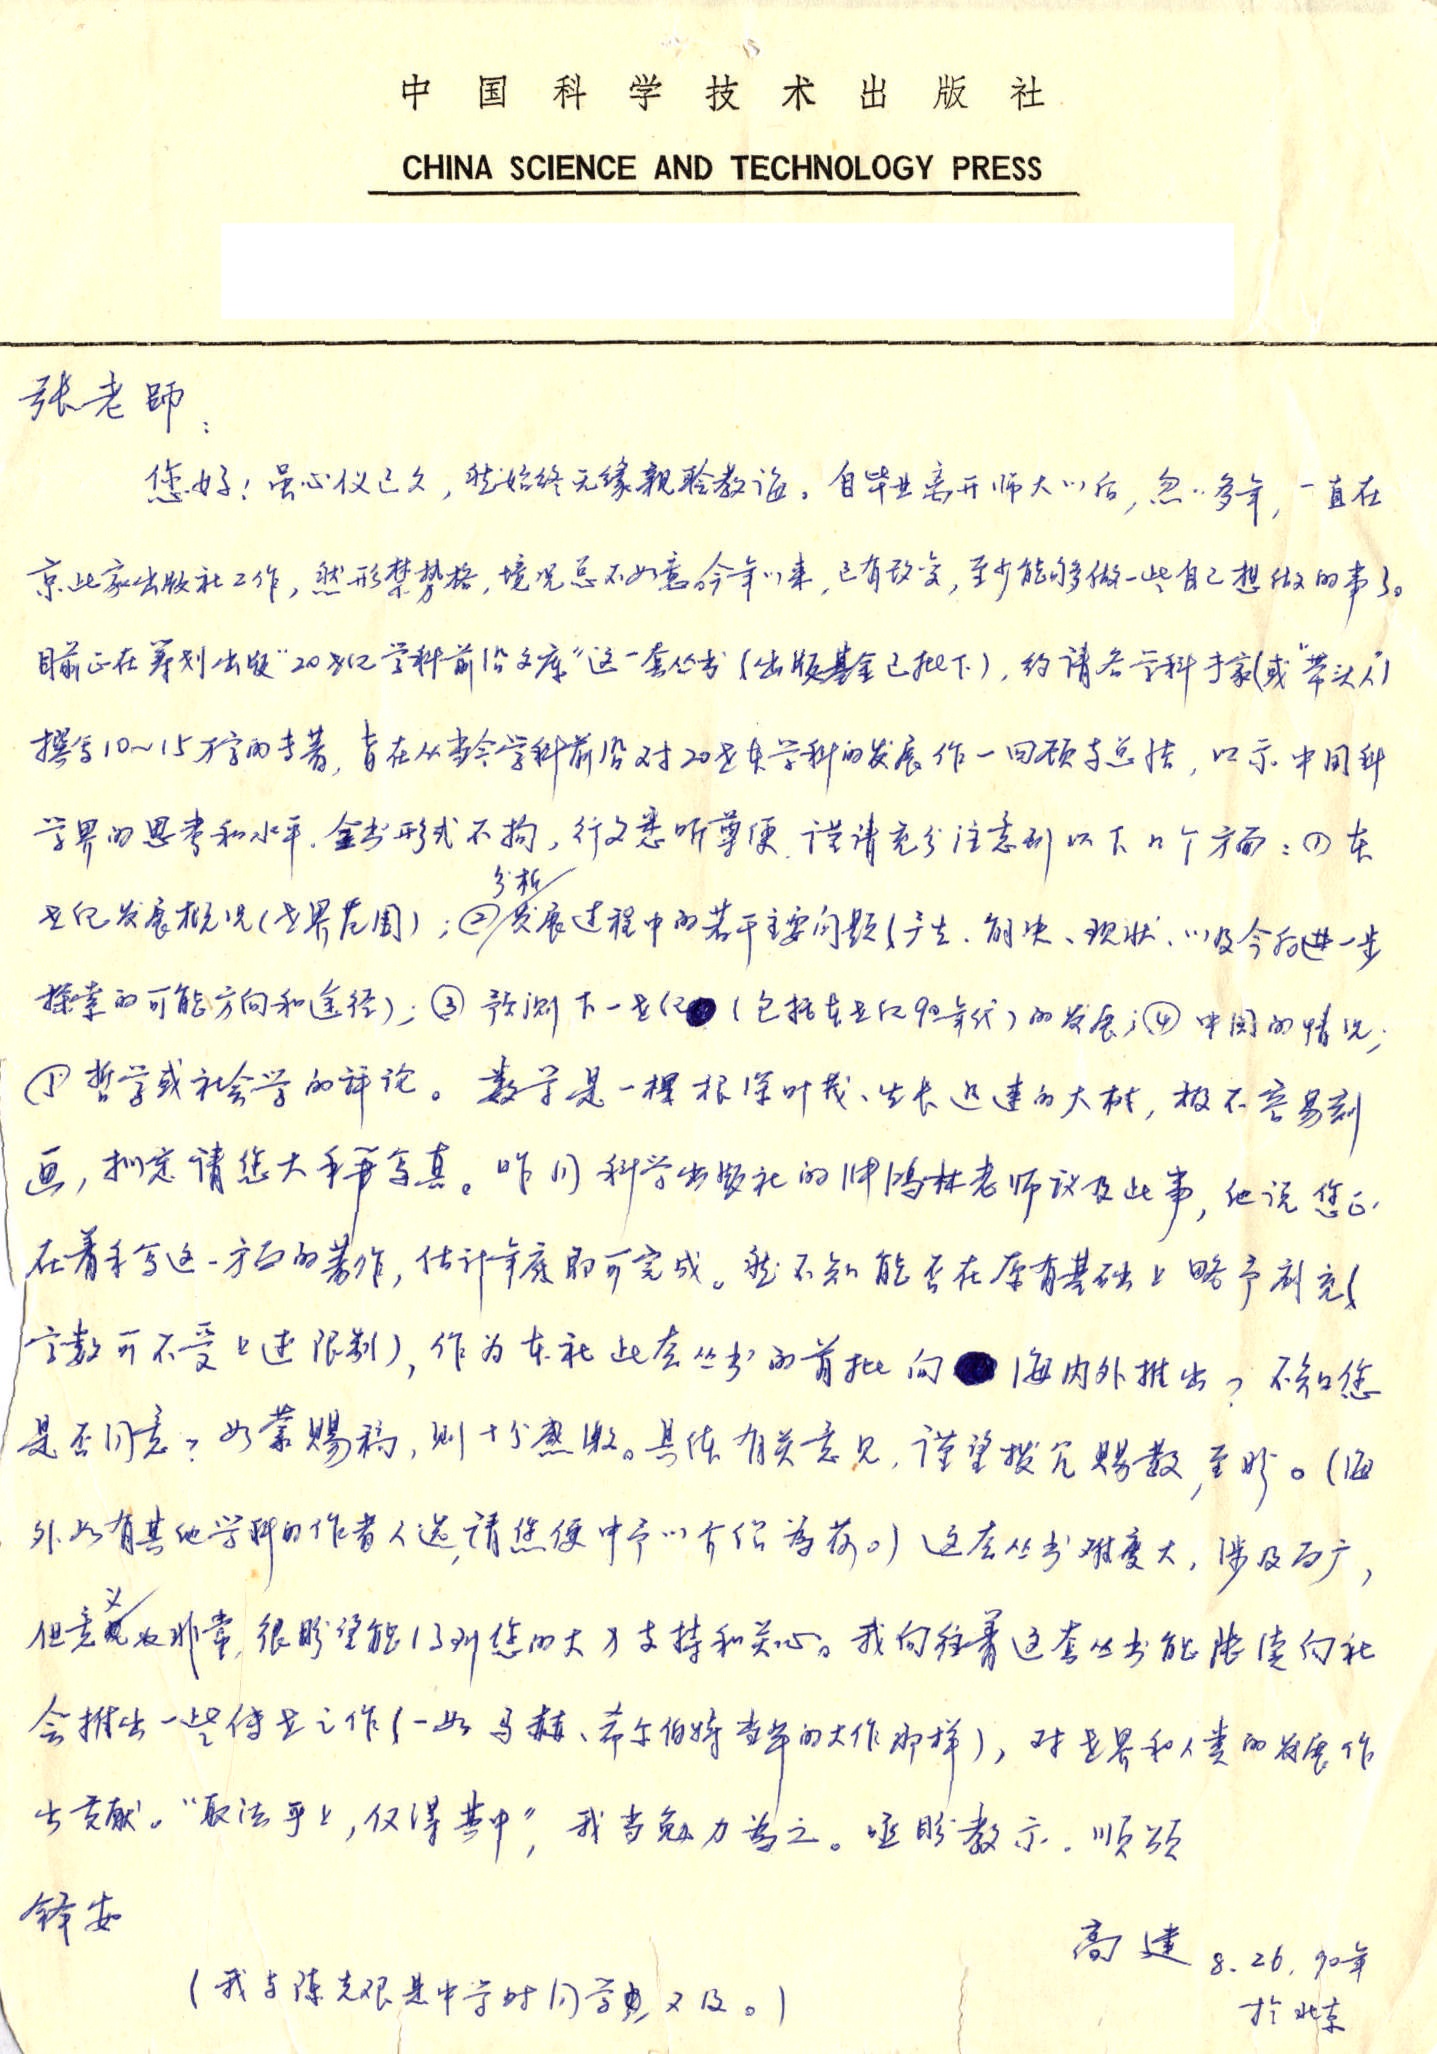 中国科学技术出版社
CHINA SCIENCE AND TECHNOLOGY PRESS
张老師：
您好！虽心仪已久，然始终无缘親聆教诲。自毕业离开师大以后，忽忽多年，一直在
京此家出版社工作，然形禁势格，境况总不如意。今年以来，已有改变，至少能够做一些自己想做的事了。
目前正在筹划出版“20世纪学科前沿文库”这一套丛书（出版基金已批下），约请各学科专家（或“带头人”）
撰写10～15万字的专著，旨在从当今学科前沿对20世纪本学科的发展作一回顾与总结，以示中国科
学界的思考和水平。全书形式不拘，行文悉听尊便。谨请充分注意到以下几个方面：①本
世纪发展概况（世界范围）；②分析发展过程中的若干主要问题（产生、解决、现状、以及今后进一步
探索的可能方向和途径）；③预测下一世纪（包括本世纪90年代）的发展；④中国的情况；
⑤哲学或社会学的评论。数学是一棵根深叶茂、生长迅速的大树，极不容易刻
画，拟定请您大手笔写真。昨同科学出版社的 鸿林老师议及此事，他说您正
在着手写这一方面的著作，估计年底即可完成。然不知能否在原有基础上略予扩充（
字数可不受上述限制），作为本社此套丛书的首批向海内外推出？不知您
是否同意？如蒙賜稿，则十分感激。具体有关意见，谨望拨冗賜教，至盼。（海
外如有其他学科的作者人选，请您便中予以介绍为荷。）这套丛书难度大，涉及面广，
但意义非常，很盼望能得到您的大力支持和关心。我向往着这套丛书能陆续向社
会推出一些传世之作（一如马赫、希尔伯特当年的大作那样），对世界和人类的发展作
出贡献。“取法乎上，仅得其中”，我当勉力为之。亟盼教示。顺颂
铎安
高建 8.26.90年
于北京
（我与陈克艰是中学时同学，又及。）